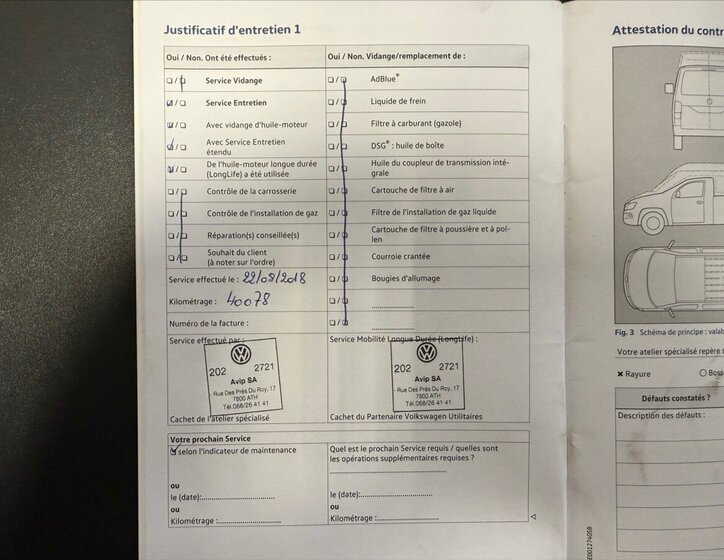 Justificatif d'entretien 1
Oui / Non. Ont été effectués :
Service Vidange
Service Entretien
Avec vidange d'huile-moteur
Avec Service Entretien
étendu
De l'huile-moteur longue durée
(LongLife) a été utilisée
Contrôle de la carrosserie
Contrôle de l'installation de gaz
Réparation(s) conseillée(s)
Souhait du client
(à noter sur l'ordre)
Service effectué le : 22/05/2018
Kilométrage : 40078
Numéro de la facture :
Oui / Non. Vidange/remplacement de :
AdBlue®
Liquide de frein
Filtre à carburant (gazole)
DSG® : huile de boîte
Huile du coupleur de transmission inté-
grale
Cartouche de filtre à air
Filtre de l'installation de gaz liquide
Cartouche de filtre à poussière et à pol-
len
Courroie crantée
Bougies d'allumage
Service effectué par :
202 2721
Avip SA
Rue Des Prés Du Roy, 17
7800 ATH
Tél.068/26 41 41
Cachet de l'atelier spécialisé
Service Mobilité Longue Durée (LongLife) :
202 2721
Avip SA
Rue Des Prés Du Roy, 17
7800 ATH
Tél.068/26 41 41
Cachet du Partenaire Volkswagen Utilitaires
Votre prochain Service
selon l'indicateur de maintenance
ou
le (date):
ou
Kilométrage :
Quel est le prochain Service requis / quelles sont
les opérations supplémentaires requises ?
le (date):
ou
Kilométrage :
Attestation du contr
Fig. 3 Schéma de principe : valab
Votre atelier spécialisé repère s
Rayure Boss
Défauts constatés ?
Description des défauts :